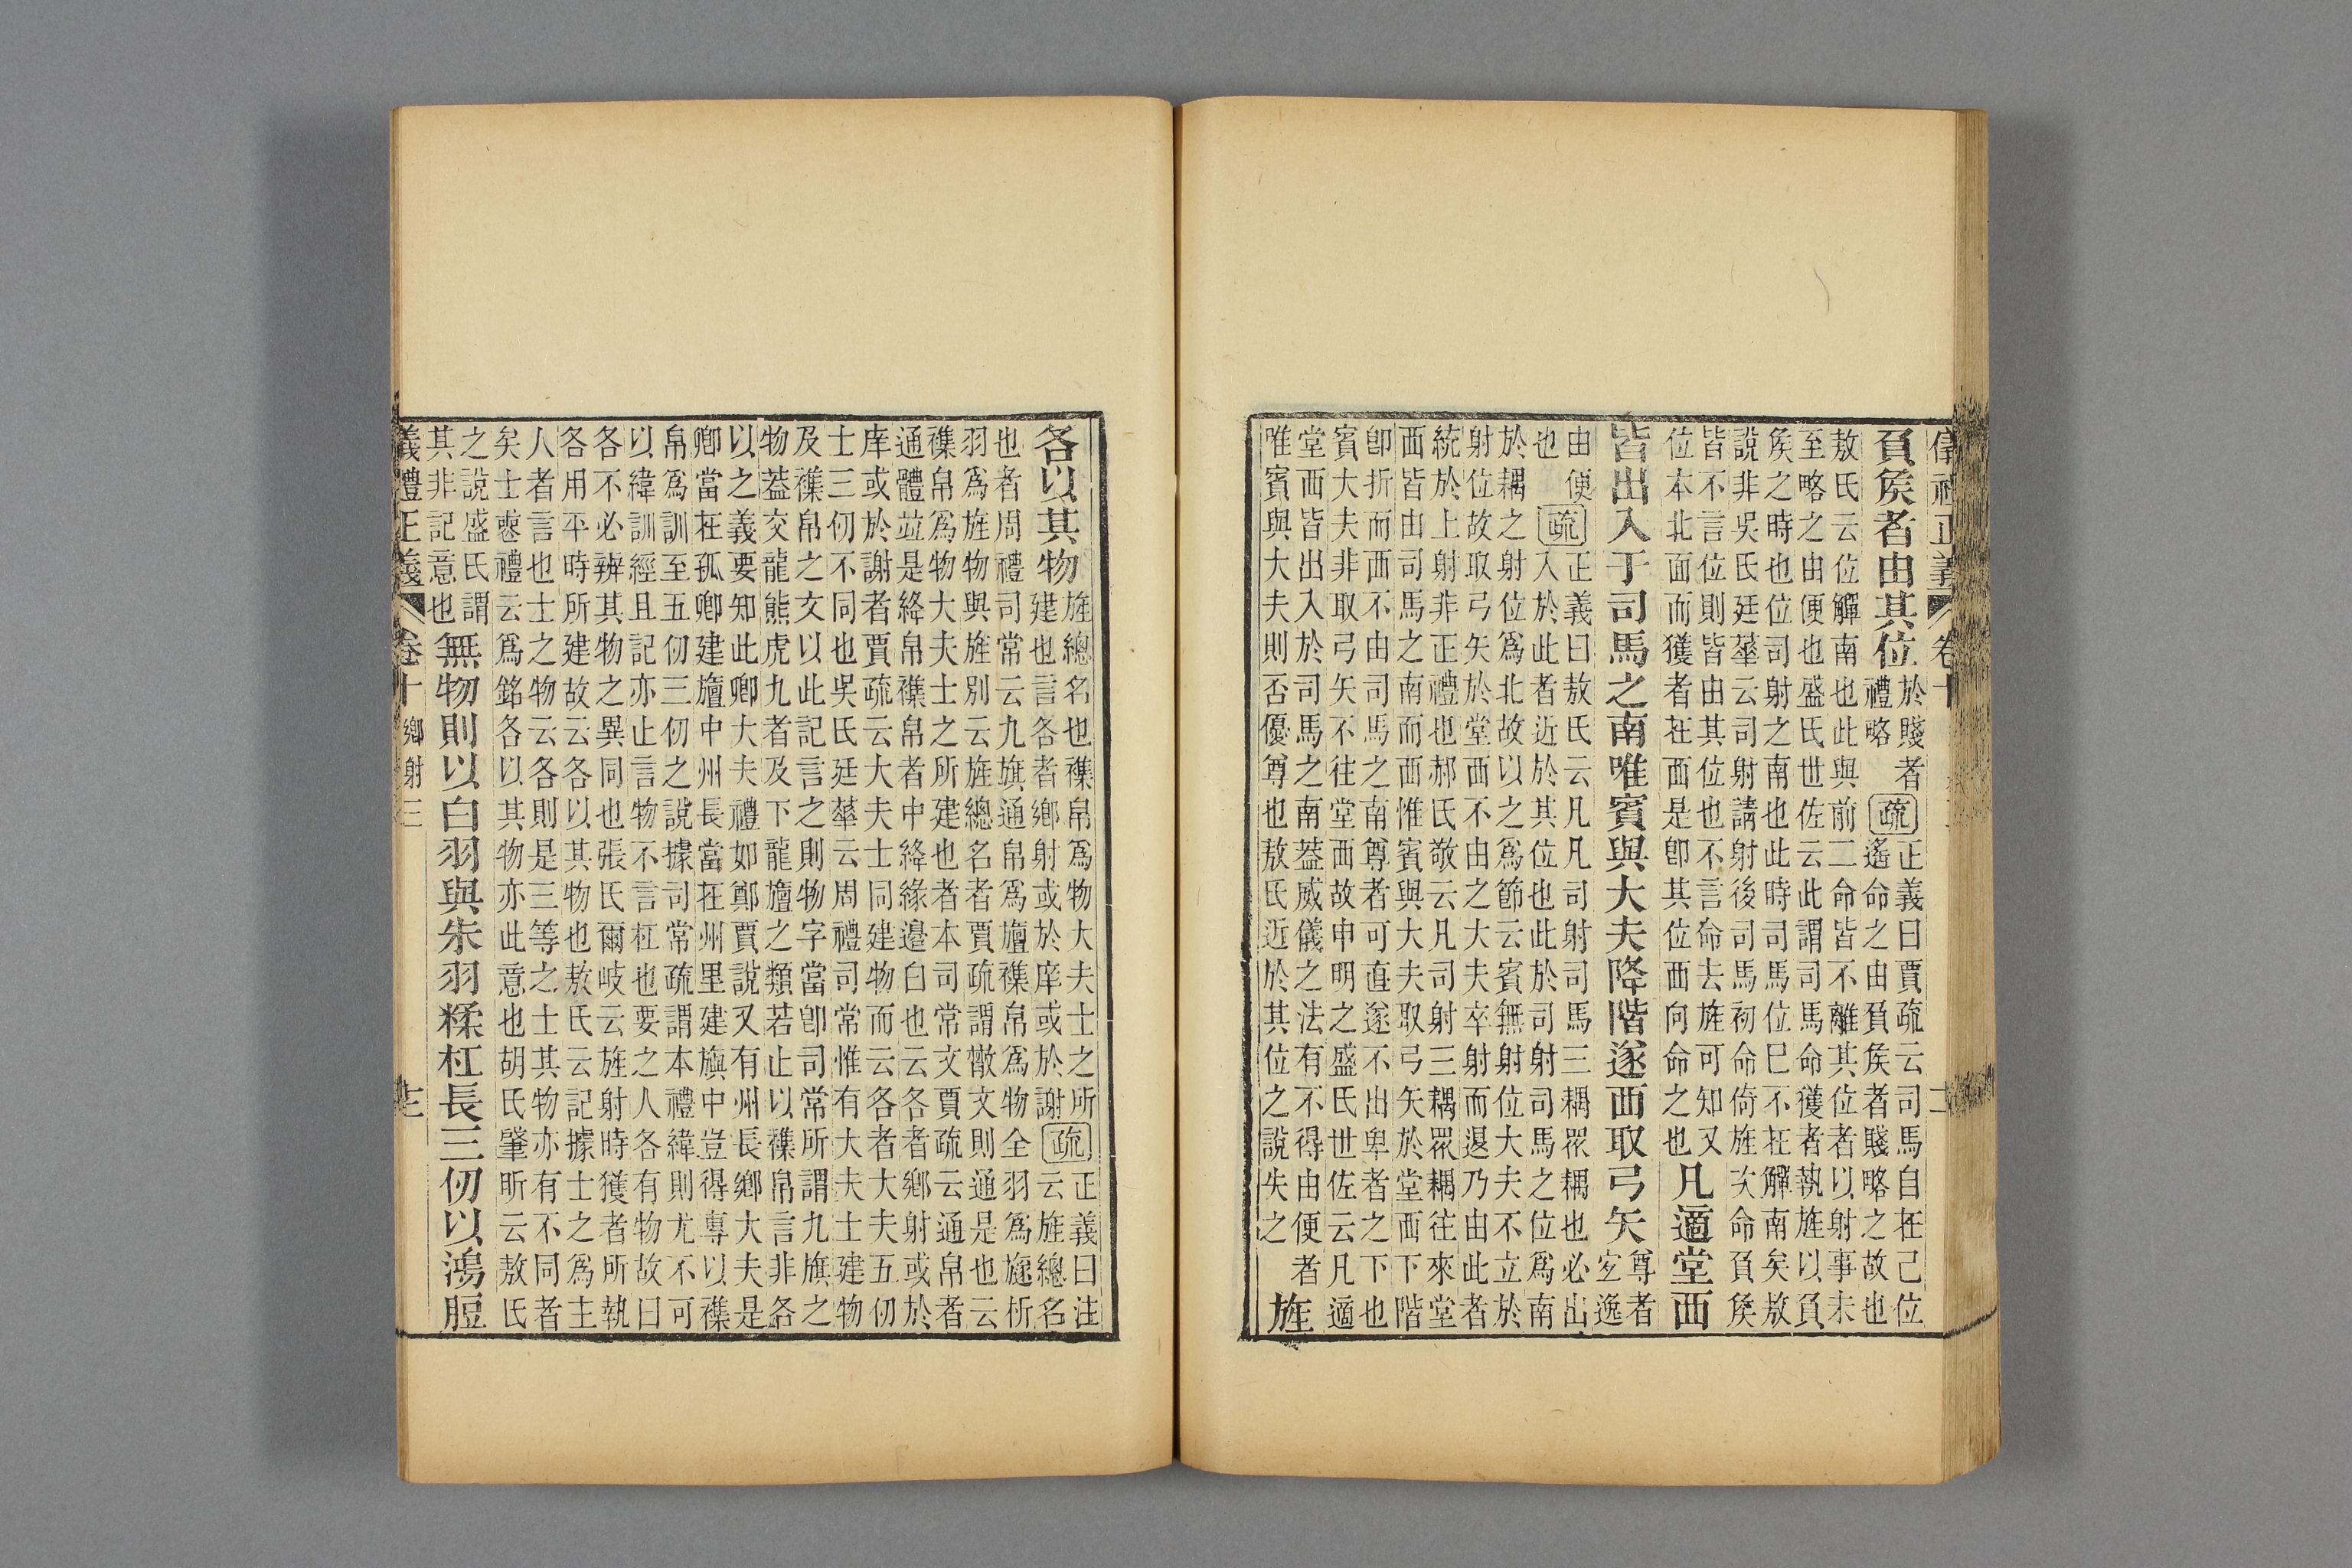 儀禮正義 卷十
負矦者由其位
於賤者
禮略
疏
正義曰賈疏云司馬自在己位
遙命之由負矦者賤略之故也
敖氏云位觶南也此與前二命皆不離其位者以射事未
至略之由便也盛氏世佐云此謂司馬命獲者執旌以負
矦之時也位司射之南也此時司馬位巳不在觶南矣敖
說非吳氏廷華云司射請射後司馬初命倚旌次命負矦
皆不言位則皆由其位也不言命去旌可知又
位本北面而獲者在西是卽其位西向命之也
凡適堂西
皆出入于司馬之南唯賓與大夫降階遂西取弓矢
尊者
宐逸
由便
也
疏
正義曰敖氏云凡凡司射司馬三耦眾耦也必出
入於此者近於其位也此於司射司馬之位爲南
於耦之射位爲北故以之爲節云賓無射位大夫不立於
射位故取弓矢於堂西不由之大夫卒射而退乃由此者
統於上射非正禮也郝氏敬云凡司射三耦眾耦往來堂
西皆由司馬之南而西惟賓與大夫取弓矢於堂西下階
卽折而西不由司馬之南尊者可直遂不出卑者之下也
賓大夫非取弓矢不往堂西故申明之盛氏世佐云凡適
堂西皆出入於司馬之南葢威儀之法有不得由便者
唯賓與大夫則否優尊也敖氏近於其位之說失之
旌
各以其物
旌總名也襍帛爲物大夫士之所
建也言各者鄉射或於庠或於謝
疏
正義曰注
云旌總名
也者周禮司常云九旗通帛爲旜襍帛爲物全羽爲旞析
羽爲旌物與旌別云旌總名者賈疏謂散文則通是也云
襍帛爲物大夫士之所建也者本司常文賈疏云通帛者
通體竝是絳帛襍帛者中絳緣邉白也云各者鄉射或於
庠或於謝者賈疏云大夫士同建物而云各者大夫五仞
士三仞不同也吳氏廷華云周禮司常惟有大夫士建物
及襍帛之文以此記言之則物字當卽司常所謂九旗之
物葢交龍熊虎九者及下龍旜之類若止以襍帛言非各
以之義要知此卿大夫禮如鄭賈說又有州長鄉大夫是
卿當在孤卿建旜中州長當在州里建旟中豈得專以襍
帛爲訓至五仞三仞之說據司常疏謂本禮緯則尤不可
以緯訓經且記亦止言物不言杠也要之人各有物故曰
各不必辨其物之異同也張氏爾岐云旌射時獲者所執
各用平時所建故云各以其物也敖氏云記據士之爲主
人者言也士之物云各則是三等之士其物亦有不同者
矣士喪禮云爲銘各以其物亦此意也胡氏肇昕云敖氏
之說盛氏謂
其非記意也
無物則以白羽與朱羽糅杠長三仞以鴻脰
義禮正義 卷十 鄉射三